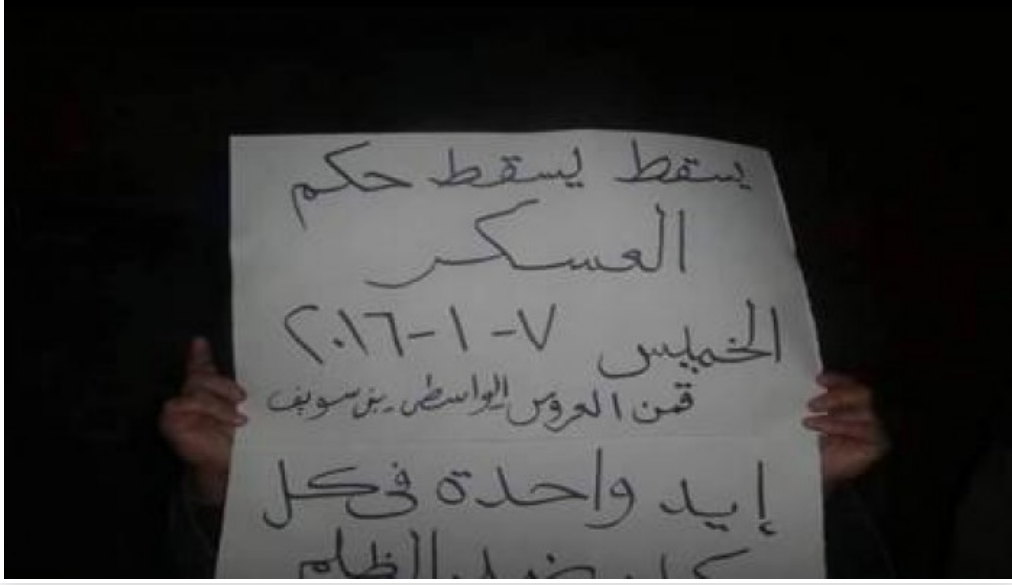 يسقط يسقط حكم
العسكر
الخميس ٧-١-٢٠١٦
قمن العروس الواسطى بنى سويف
إيد واحدة فى كل
ضد الظلم